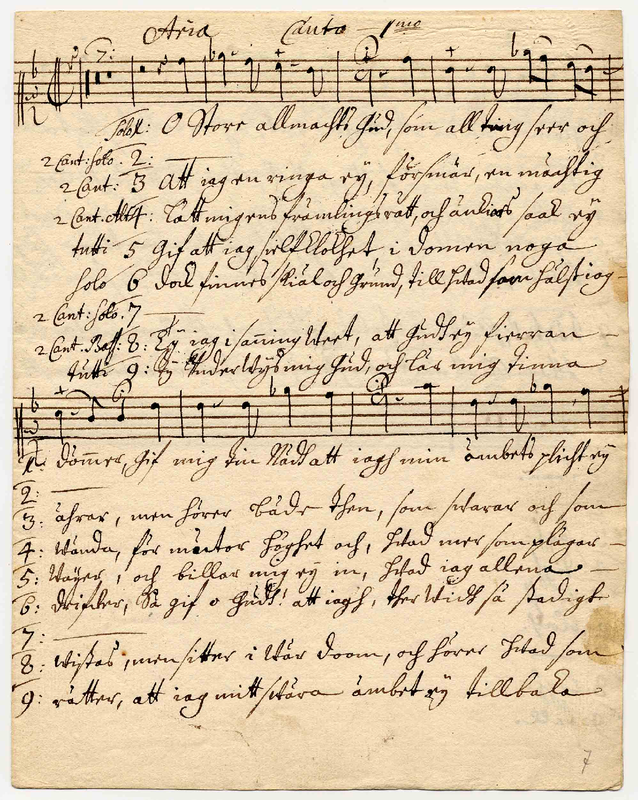 Aria Canto 1mo
7:
Solo: O Store allmachts Gud, som all ting seer och
2 Cant: Solo. 2:
2 Cant: 3 Att iag en ringa ey, försmår, en mächtig
2 Cant. Alt 4: Lätt migens främlings rätt, och änkiors saak ey
tutti 5 Gif att iag sielf klokhet i domen noga
Solo 6 dock finnes skiäl och Grund, till hwad som hälst iag
2 Cant: Solo. 7
2 Cant. Bass: 8: Ey iag i sanning Weet, att Gudh ey fierran
tutti 9: Ey Underwys mig Gud, och lär mig tinna
1: dömmer, Gif mig tin Nådh att iagh min ämbets plicht ey
2:
3: ährar, men hörer både then, som swarar och som
4: Wända, för höghet och, hwad mer som plägar
5: Wäyer, och billar mig ey in, hwad iag allena
6: Så gif o Gudh! att iagh, ther widh så stadigt
7:
8: wistas, men sitter i Wår doom, och hörer hwad som
9: rätter, att iag mitt swåra ämbet ey tillbaka
7